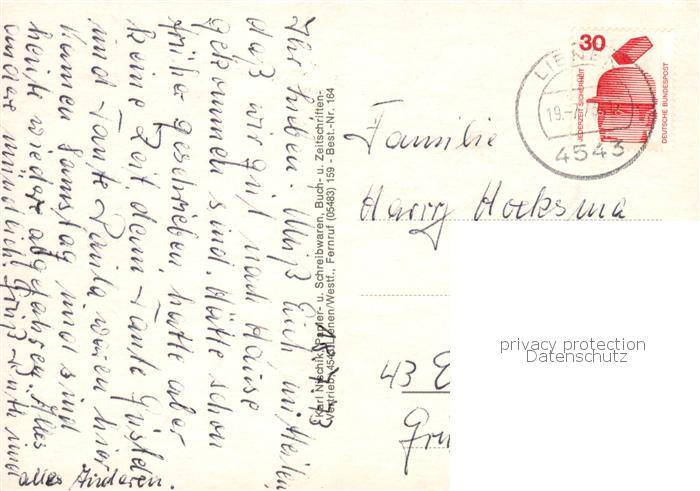 Ihr Lieben. Muß Euch mitteilen,
daß wir gut nach Hause
gekommen sind. Hätte schon
früher geschrieben, hatte aber
keine Zeit denn Tante Gustchen
und Tante Paula waren hier
kamen Samstag und sind
heute wieder abgefahren. Alles
andere mündlich. Gruß Ruth und
alles Anderen.
Karl Nitschik, Papier- u. Schreibwaren, Buch- u. Zeitschriften-
Vertrieb, 4543 Lienen/Westf., Fernruf (05483) 159 - Best.-Nr. 164
30
JEDERZEIT SICHERHEIT
DEUTSCHE BUNDESPOST
LIENEN
4543
Familie
Harry Hoeksma
privacy protection
Datenschutz
43 E
Gru